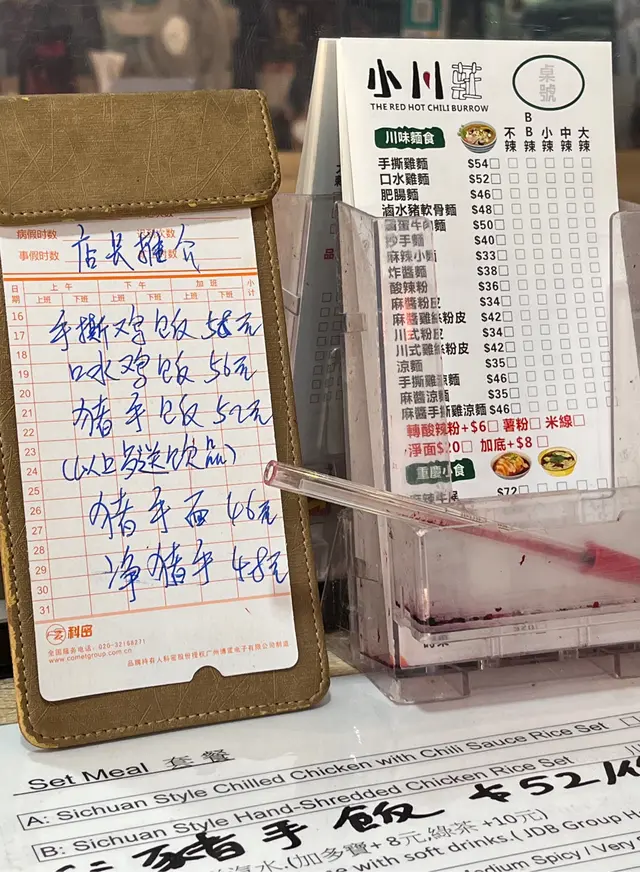 病假时数
事假时数
店长推介
日期 上午 下午 加班 小计
上班 下班 上班 下班 上班 下班
16
17
18
19
20
21
22
23
24
25
26
27
28
29
30
31
手撕鸡饭 58元
口水鸡饭 56元
猪手饭 52元
(以上跟送饮品)
猪手面 46元
净猪手 48元
科密
全国服务电话:020-32168271
www.cometgroup.com.cn
品牌持有人科密股份授权广州博泥电子有限公司制造
小川莊
THE RED HOT CHILI BURROW
桌號
川味麵食
不辣 BB辣 小辣 中辣 大辣
手撕雞麵 $54
口水雞麵 $52
肥腸麵 $46
滷水豬軟骨麵 $48
牛肉麵 $50
抄手麵 $40
麻辣小麵 $33
炸醬麵 $38
酸辣粉 $36
麻醬粉皮 $34
麻醬雞絲粉皮 $42
川式粉皮 $34
川式雞絲粉皮 $42
涼麵 $35
手撕雞涼麵 $46
麻醬涼麵 $35
麻醬手撕雞涼麵 $46
轉酸辣粉+$6 薯粉 米線
淨面$20 加底+$8
重慶小食
$72
Set Meal 套餐
A: Sichuan Style Chilled Chicken with Chili Sauce Rice Set
B: Sichuan Style Hand-Shredded Chicken Rice Set
豬手飯 $52
(加多寶+8元,綠茶+10元)
with soft drinks.(JDB Group H
Medium Spicy / Very